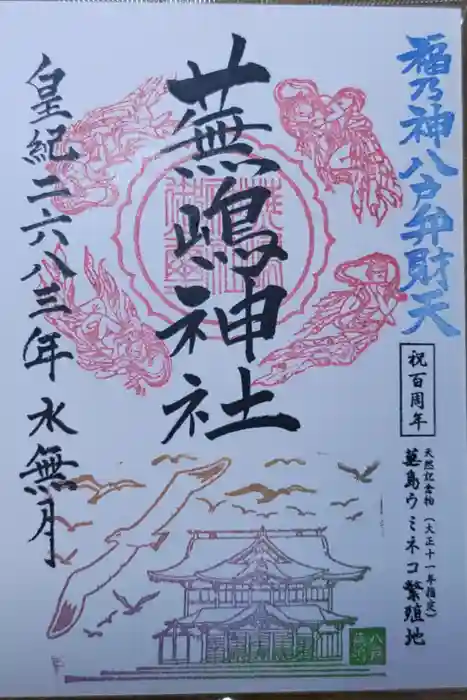 福乃神八戸弁財天
祝百周年
天然記念物(大正十一年指定)
蕪島ウミネコ繁殖地
蕪嶋神社
皇紀二六八三年水無月
八戸